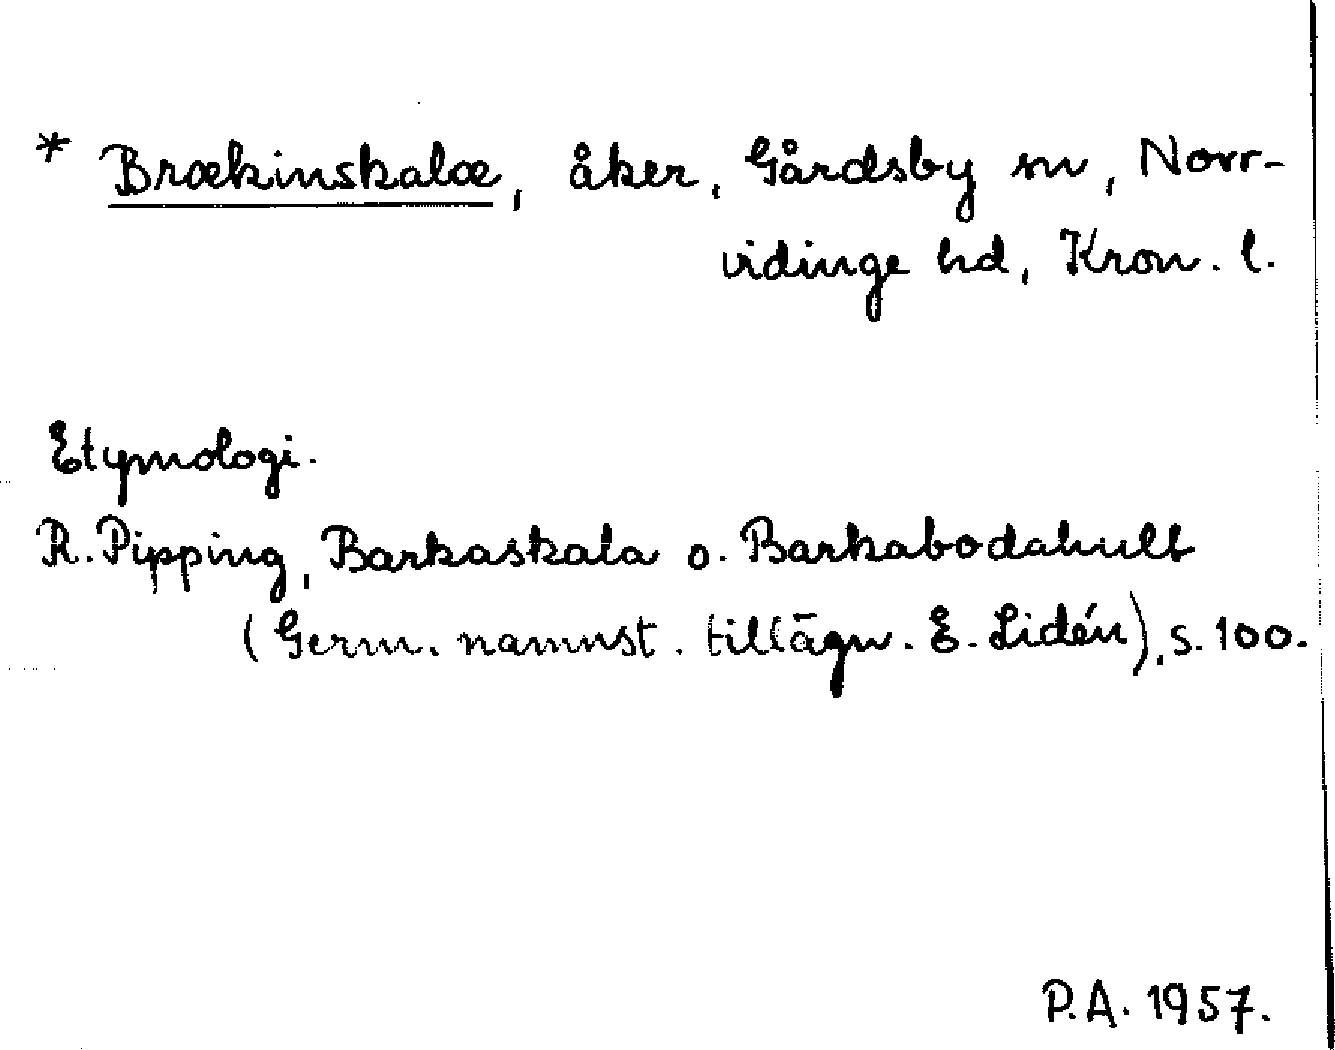 * Brækinskalæ, åker, Gårdsby sn, Norr-
vidinge hd, Kron. l.
Etymologi.
R. Pipping, Barkaskala o. Barkabodahult
(Germ. namnst. tillägn. E. Lidén), s. 100.
P.A. 1957.